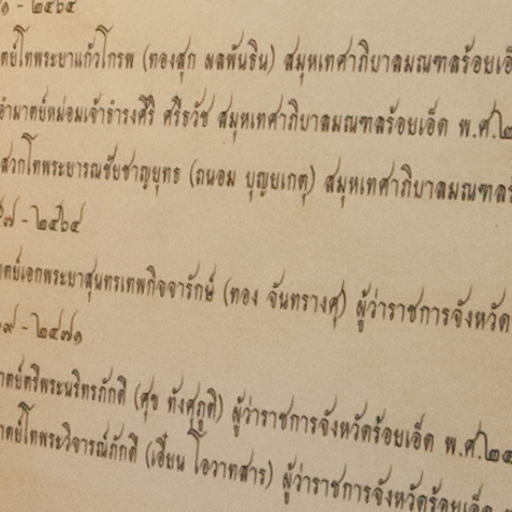 ๑ - ๒๔๖๔
ตย์โทพระยาแก้วโกรพ (ทองสุก ผลพันธิน) สมุหเทศาภิบาลมณฑลร้อยเอ็
อำมาตย์หม่อมเจ้าธำรงศิริ ศรีธวัช สมุหเทศาภิบาลมณฑลร้อยเอ็ด พ.ศ.๒
สวกโทพระยารณชัยชาญยุทธ (ถนอม บุญยเกตุ) สมุหเทศาภิบาลมณฑลร้
๗ - ๒๔๖๙
ตย์เอกพระยาสุนทรเทพกิจจารักษ์ (ทอง จันทรางศุ) ผู้ว่าราชการจังหวัด
๙ - ๒๔๗๑
าตย์ตรีพระนรินทรภักดี (ศุข ทังศุภูติ) ผู้ว่าราชการจังหวัดร้อยเอ็ด พ.ศ.๒๔
าตย์โทพระวิจารณ์ภักดี (เอี้ยน โอวาทสาร) ผู้ว่าราชการจังหวัดร้อยเอ็ด